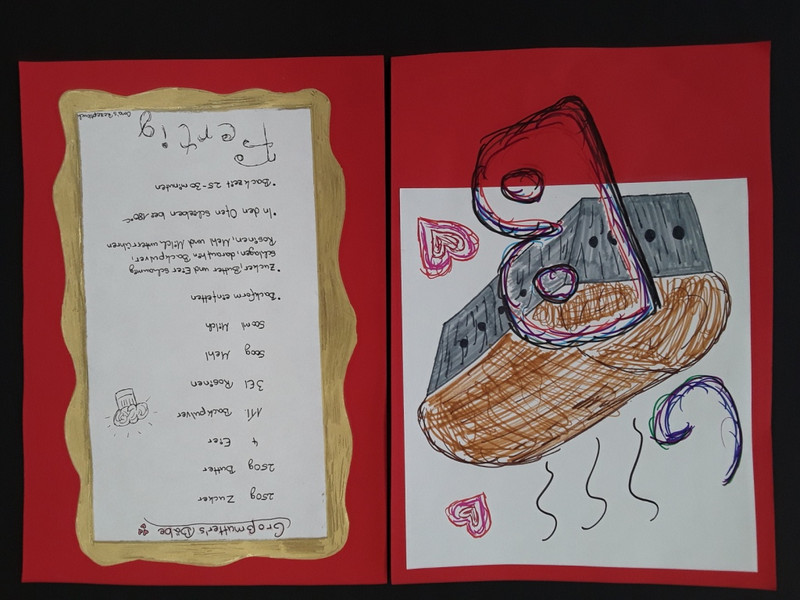 Großmutter's Bäbe
250g Zucker
250g Butter
4 Eier
1Tl. Backpulver
3El Rosinen
500g Mehl
500ml Milch
*Backform einfetten
*Zucker, Butter und Eier schaumig
schlagen, daraufhin Backpulver,
Rosinen, Mehl und Milch unterrühren
*In den Ofen schieben bei 180°C
*Backzeit 25-30 minuten
Fertig
Oma's Rezeptbuch
B